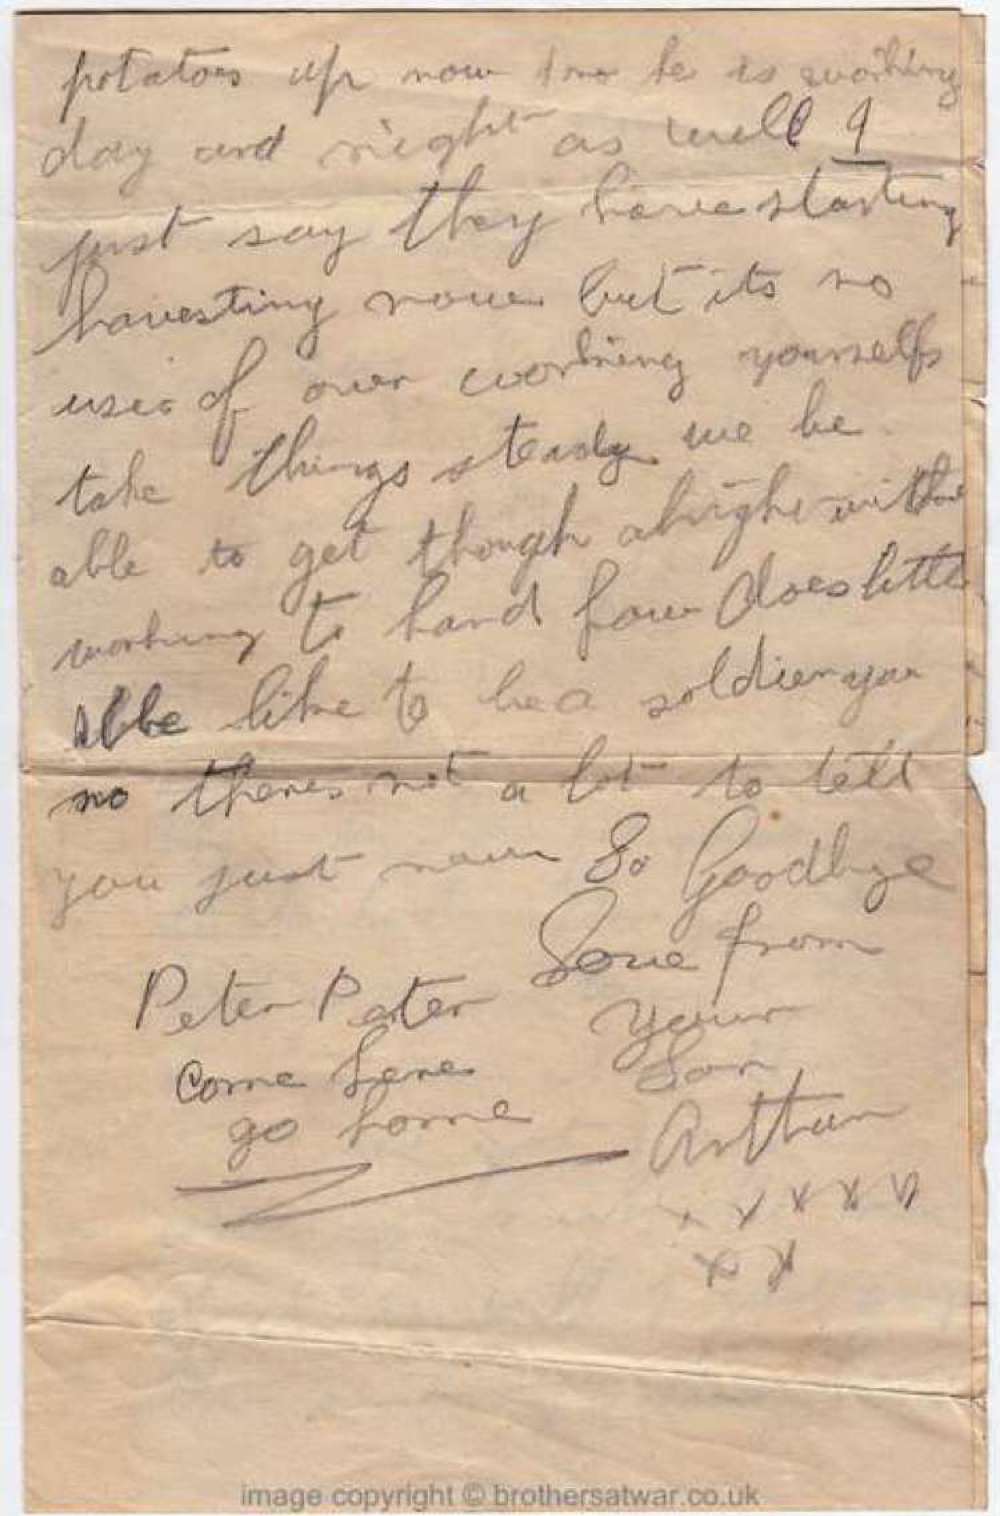 potatoes up now he is working
day and night as well I
just say they have starting
harvesting now but its no
use of over working yourselfs
take things steady we be
able to get though alright without
working to hard how does little
like to be a soldier you
no theres not a lot to tell
you just now So Goodbye
Love from
Your
Son
Arthur
x x x x x
x x
Peter Peter
Come here
go home
image copyright © brothersatwar.co.uk